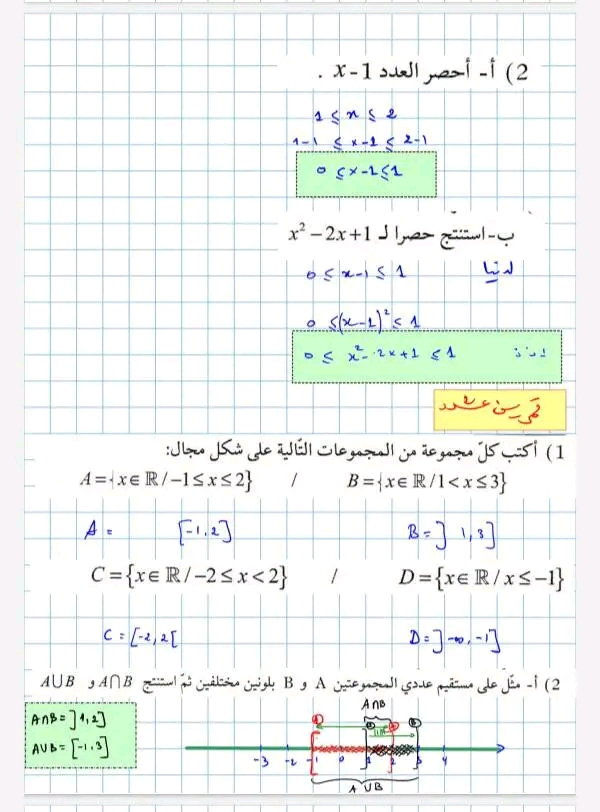 2) أ- أحصر العدد x-1 .
1 ≤ x ≤ 2
1-1 ≤ x-1 ≤ 2-1
0 ≤ x-1 ≤ 1
ب-استنتج حصرا لـ x²-2x+1
لدينا 0 ≤ x-1 ≤ 1
0 ≤ (x-1)² ≤ 1
0 ≤ x²-2x+1 ≤ 1
1) أكتب كلّ مجموعة من المجموعات التّالية على شكل مجال:
A={x∈ℝ/-1≤x≤2} / B={x∈ℝ/1<x≤3}
A = [-1,2] B = ]1,3]
C={x∈ℝ/-2≤x<2} / D={x∈ℝ/x≤-1}
C = [-2,2[ D = ]-∞,-1]
2) أ- مثّل على مستقيم عددي المجموعتين A و B بلونين مختلفين ثمّ استنتج A∩B و A∪B
A∩B
A∩B = ]1,2]
A∪B = [-1,3]
-3 -2 -1 0 1 2 3 4
A ∪ B